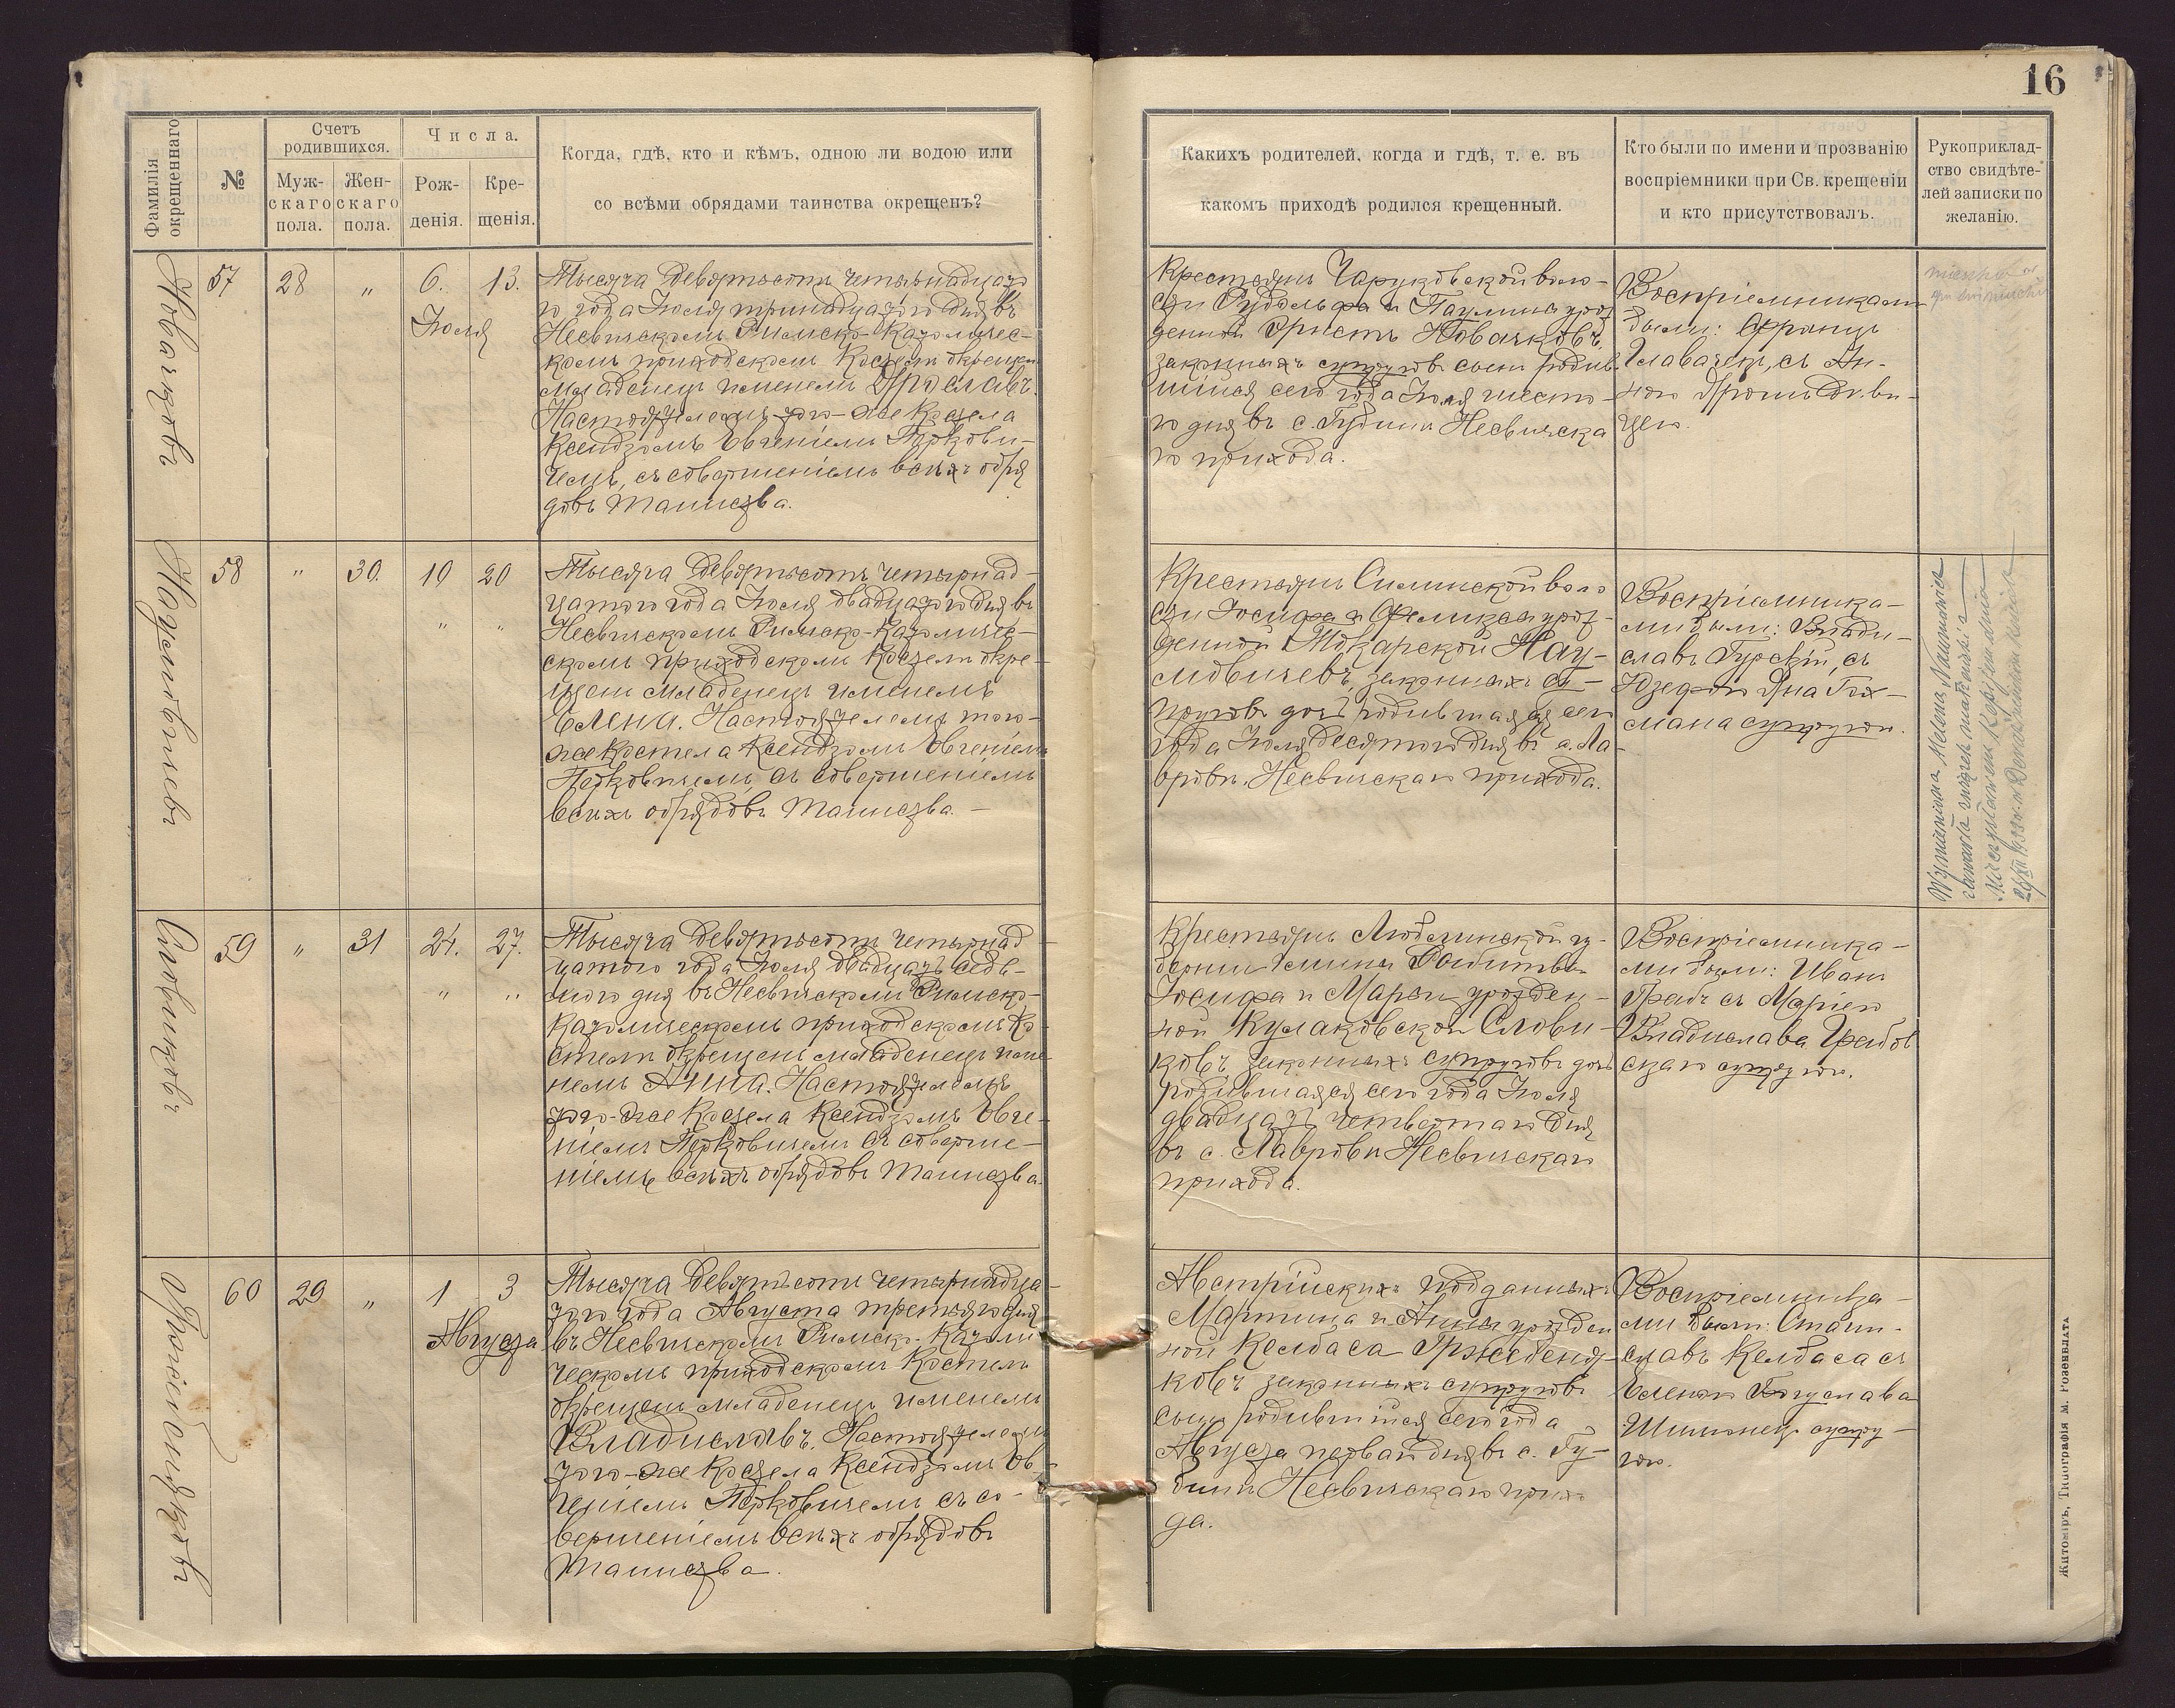 16
Фамилія окрещеннаго
№
Счетъ родившихся.
Мужскаго пола.
Женскаго пола.
Числа.
Рожденія.
Крещенія.
Когда, гдѣ, кто и кѣмъ, одною ли водою или
со всѣми обрядами таинства окрещенъ?
Какихъ родителей, когда и гдѣ, т. е. въ
какомъ приходѣ родился крещенный.
Кто были по имени и прозванію
воспріемники при Св. крещеніи
и кто присутствовалъ.
Рукоприклад-
ство свидѣте-
лей записки по
желанію.
Новачковъ
57
28
"
6.
13.
Іюля
Тысяча девятьсотъ четырнадцато
го года Іюля тринадцатого дня въ
Несвичскомъ Римско-Католичес-
комъ приходскомъ Костелѣ окрещенъ
младенецъ именемъ Ярославъ.
Настоятелемъ того-же Костела
Ксендзомъ Евгеніемъ Перкови-
чемъ, съ совершеніемъ всѣхъ обря
довъ Таинства.
Крестьянъ Чаруковской воло-
сти Рудольфа и Паулины урож
денной Эрнстъ Новачковъ,
законныхъ супруговъ сынъ родив-
шійся сего года Іюля шесто-
го дня въ с. Губинѣ Несвичска
го прихода.
Воспріемниками
были: Францъ
Главачекъ, съ Ан-
ною
цею.
Наумовичевъ
58
"
30.
10
20
"
"
Тысяча девятьсотъ четырнад-
цатого года Іюля двадцатого дня въ
Несвичскомъ Римско-Католичес-
скомъ приходскомъ Костелѣ окре-
щенъ младенецъ именемъ
Елена. Настоятелемъ того-
же Костела Ксендзомъ Евгеніемъ
Перковичемъ, съ совершеніемъ
всѣхъ обрядовъ Таинства. -
Крестьянъ Силинской воло
сти Іосифа и Феликсы урож-
денной Токарской Нау-
мовичевъ, законныхъ су-
пруговъ дочь родившаяся сего
года Іюля десятого дня въ с. Ла-
вровѣ Несвичскаго прихода.
Воспріемника-
ми были: Влади-
славъ Гурскій, съ
Юзефою Яна Гох-
мана супругою.
Wzmieniona Helena Naumowicz
zawarła związek małżeński z
Словиковъ
59
"
31
24.
27.
"
"
Тысяча девятьсотъ четырнад
цатого года Іюля двадцать седь-
мого дня въ Несвичскомъ Римско-
Католическомъ приходскомъ Ко-
стелѣ окрещенъ младенецъ име-
немъ Анна. Настоятелемъ
того-же Костела Ксендзомъ Евге-
ніемъ Перковичемъ съ соверше-
ніемъ всѣхъ обрядовъ Таинства.
Крестьянъ Люблинской гу-
берніи гмины
Іосифа и Марьи урожден-
ной Кулаковской Слови-
ковъ законныхъ супруговъ дочь
родившаяся сего года Іюля
двадцать четвертаго дня
въ с. Лавровѣ Несвичскаго
прихода.
Воспріемника-
ми были: Иванъ
Грабъ съ Маріею
Владислава Грабов
скаго супругою.
60
29
"
1
3
Августа
Тысяча девятьсотъ четырнадца-
того года Августа третьяго дня
въ Несвичскомъ Римско-Католи
ческомъ приходскомъ Костелѣ
окрещенъ младенецъ именемъ
Владиславъ. Настоятелемъ
того-же Костела Ксендзомъ Ев-
геніемъ Перковичемъ съ со-
вершеніемъ всѣхъ обрядовъ
Таинства.
Австрійскихъ подданныхъ
Мартина и Анны урожден
ной Келбаса Гржебеня-
ковъ законныхъ супруговъ
сынъ родившійся сего года
Августа перваго дня въ с. Гу-
бинѣ Несвичскаго прихо
да.
Воспріемника-
ми были: Стани-
славъ Келбаса съ
Еленою Богуслава
супру-
гою.
Житоміръ, Типографія М. Розенблата